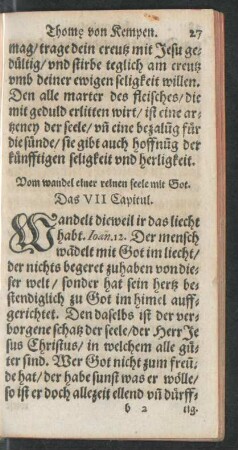 Thome von Kempen. 27
mag/ trage dein creutz mit Jesu ge-
dültig/ vnd stirbe teglich am creutz
vmb deiner ewigen seligkeit willen.
Den alle marter des fleisches/ die
mit geduld erlitten wirt/ ist eine ar-
tzeney der seele/ vn̄ eine bezalūg für
die sünde/ sie gibt auch hoffnūg der
künfftigen seligkeit vnd herligkeit.
Vom wandel einer reinen seele mit Got.
Das VII Capitul.
Wandelt dieweil ir das liecht
habt. Ioan.12. Der mensch
wādelt mit Got im liecht/
der nichts begeret zuhaben von die-
ser welt/ sonder hat sein hertz be-
stendiglich zu Got im himel auff-
gerichtet. Den daselbs ist der ver-
borgene schatz der seele/ der Herr Je
sus Christus/ in welchem alle gü-
ter sind. Wer Got nicht zum freū-
de hat/ der habe sunst was er wölle/
so ist er doch allezeit ellend vn̄ dürff-
b 2 tig.